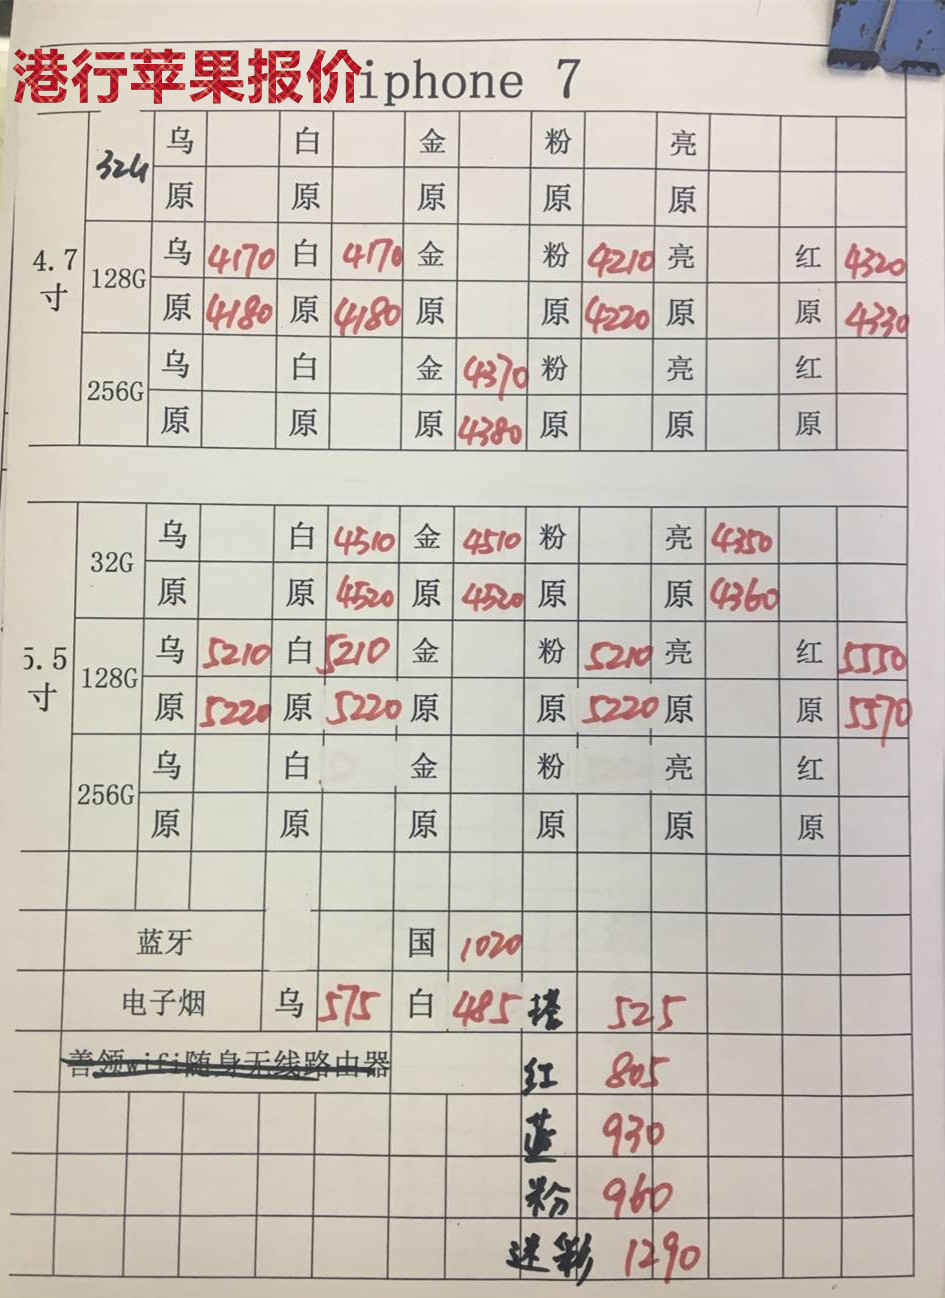 港行苹果报价 iphone 7
乌 白 金 粉 亮
32G
原 原 原 原 原
4.7寸
128G
乌 4170 白 4170 金 粉 4210 亮 红 4320
原 4180 原 4180 原 原 4220 原 原 4330
256G
乌 白 金 4370 粉 亮 红
原 原 原 4380 原 原 原
5.5寸
32G
乌 白 4510 金 4510 粉 亮 4350
原 原 4520 原 4520 原 原 4360
128G
乌 5210 白 5210 金 粉 5210 亮 红 5550
原 5220 原 5220 原 原 5220 原 原 5570
256G
乌 白 金 粉 亮 红
原 原 原 原 原 原
蓝牙 国 1020
电子烟 乌 575 白 485 525
善领wifi随身无线路由器 红 805
蓝 930
粉 960
迷彩 1290